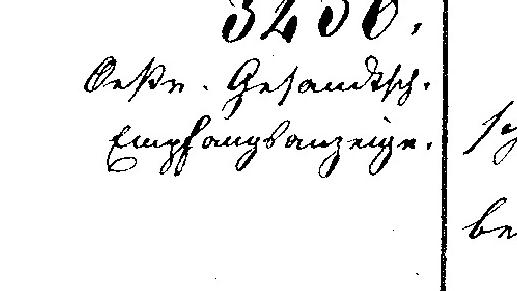 3256.
Oestr. Gesandtsch.
Empfangsanzeige.
be